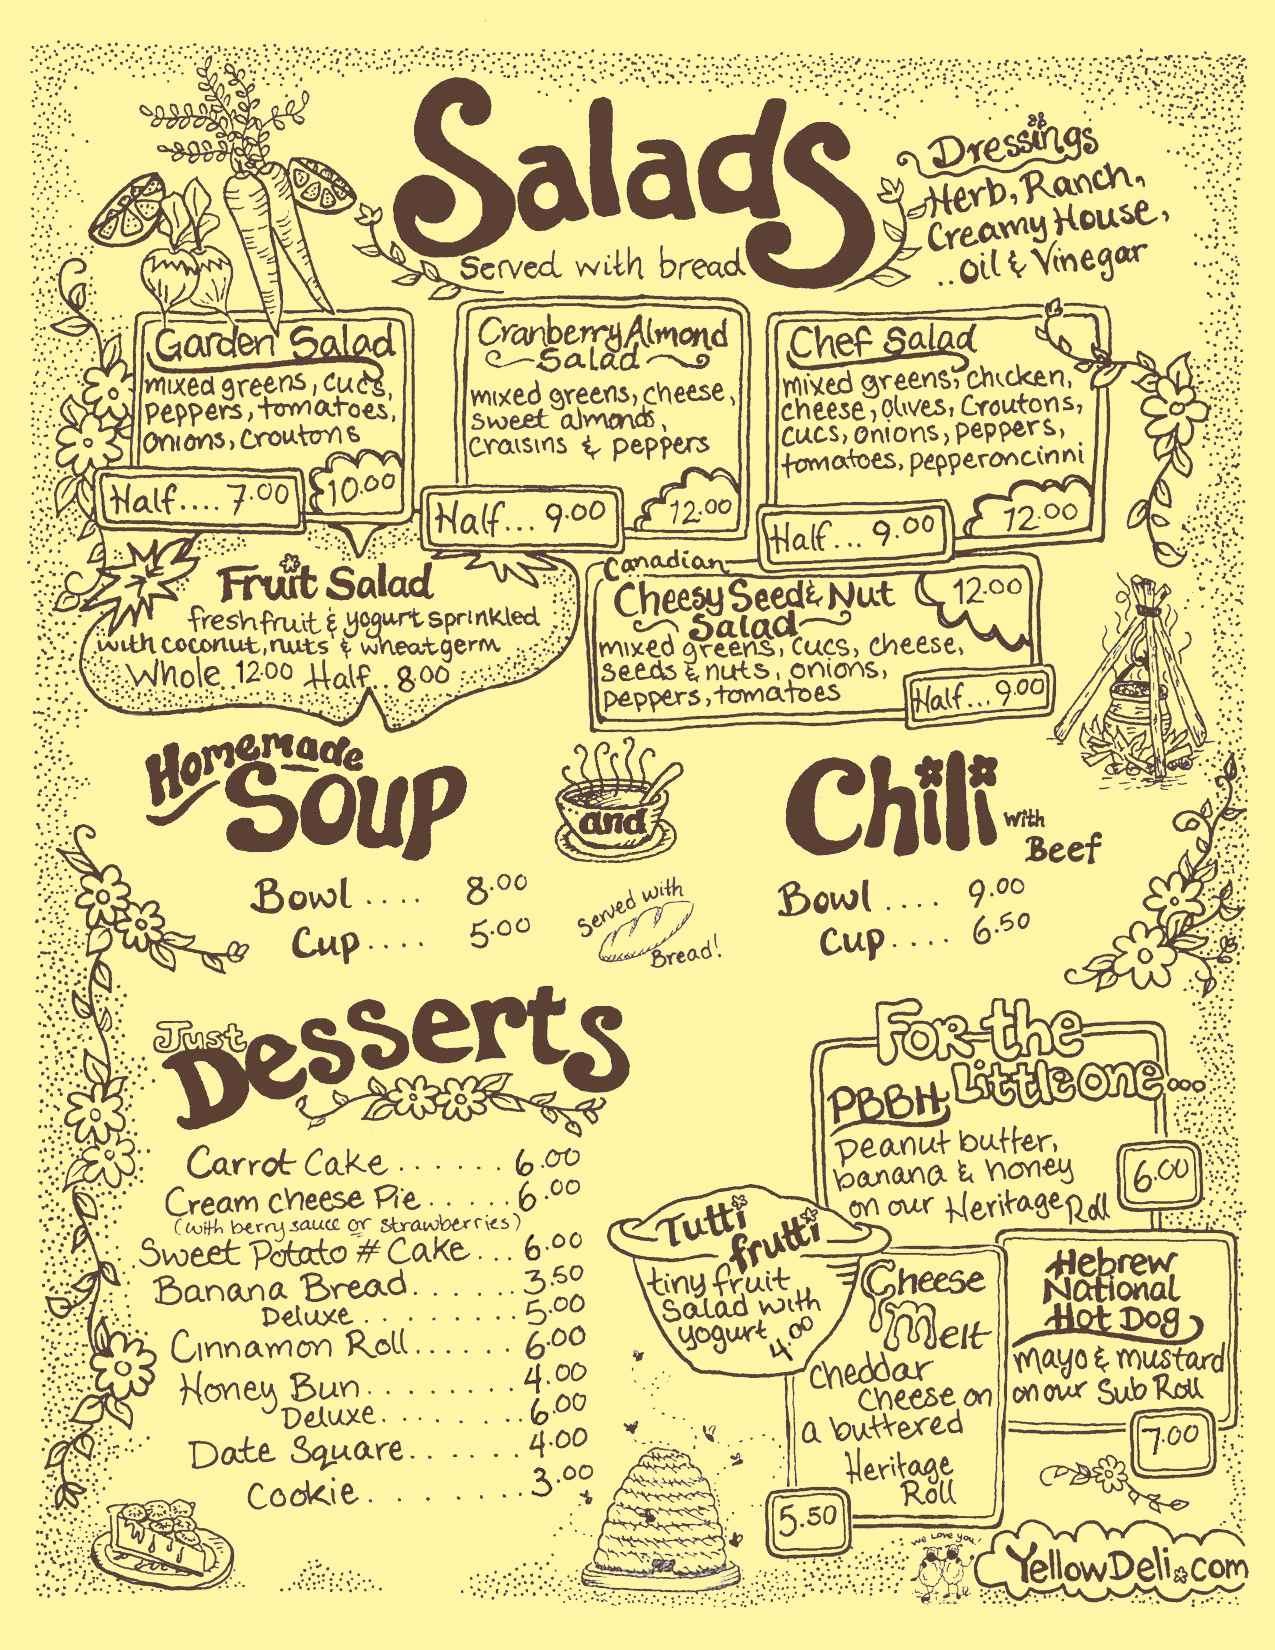 Salads
Served with bread
Dressings
Herb, Ranch,
Creamy House,
..oil & Vinegar
Garden Salad
mixed greens, cucs,
peppers, tomatoes,
onions, croutons
Half.... 7.00
10.00
Cranberry Almond
Salad
mixed greens, cheese,
sweet almonds,
craisins & peppers
Half... 9.00
12.00
Chef Salad
mixed greens, chicken,
cheese, olives, croutons,
cucs, onions, peppers,
tomatoes, pepperoncinni
Half... 9.00
12.00
Fruit Salad
fresh fruit & yogurt sprinkled
with coconut, nuts & wheatgerm
Whole 12.00 Half.. 8.00
Canadian
Cheesy Seed & Nut
Salad
12.00
mixed greens, cucs, cheese,
seeds & nuts, onions,
peppers, tomatoes
Half... 9.00
Homemade
Soup
and
Chili
with
Beef
Bowl .... 8.00
Cup.... 5.00
Served with
Bread!
Bowl .... 9.00
Cup.... 6.50
Just
Desserts
Carrot Cake ...... 6.00
Cream cheese Pie ...... 6.00
(with berry sauce or strawberries)
Sweet Potato # Cake... 6.00
Banana Bread...... 3.50
Deluxe ........ 5.00
Cinnamon Roll...... 6.00
Honey Bun........ 4.00
Deluxe........ 6.00
Date Square...... 4.00
Cookie........ 3.00
For the
Little one...
PBBH
peanut butter,
banana & honey
on our Heritage Roll
6.00
Tutti
frutti
tiny fruit
Salad with
yogurt 4.00
Cheese
Melt
cheddar
cheese on
a buttered
Heritage
Roll
5.50
Hebrew
National
Hot Dog
mayo & mustard
on our Sub Roll
7.00
we love you!
YellowDeli.com